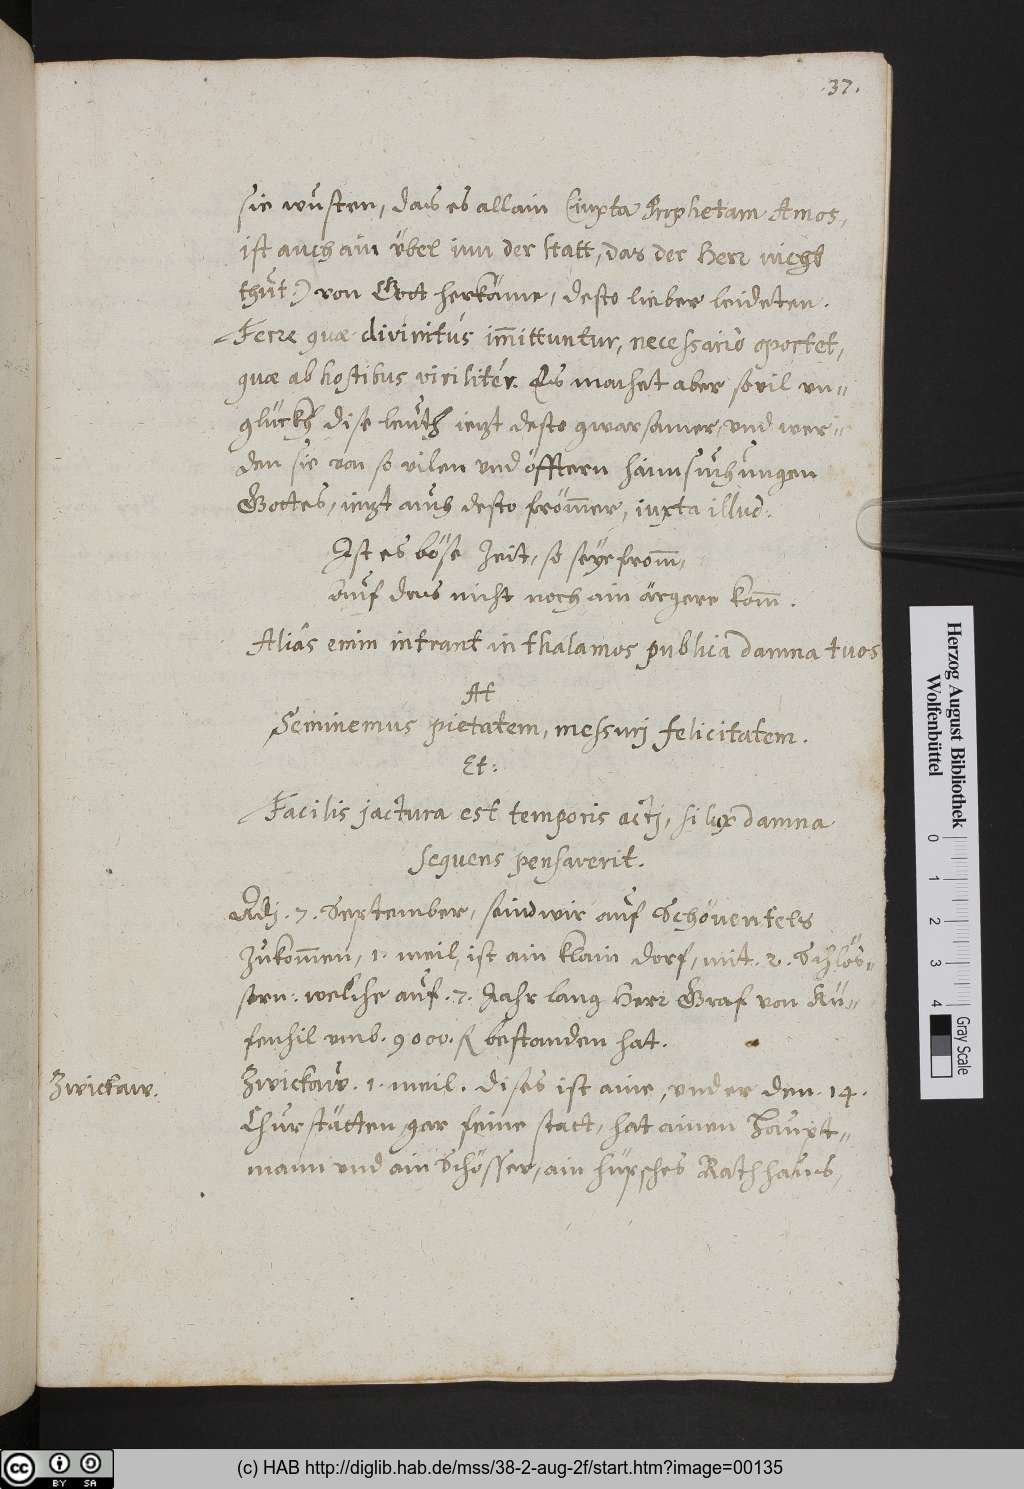 .37.
sie wüsten, das es allain (iuxta Prophetam Amos,
ist auch ain übel inn der statt, das der Herr nicht
thüt:) von Gott herkäme, desto lieber leideten.
Ferre quæ divinitùs im̄ittuntur, necessariò oportet,
quæ ab hostibus virilitèr. Es machet aber sovil un-
glückh dise leüth iezt desto gwarsamer, und wer-
den sie von so vilen und öfftern haimsuchungen
Gottes, iezt auch desto from̄er, iuxta illud:
Ist es böse Zeit, so seye from̄,
Auf das nicht noch ain ärgere kom̄.
Aliàs enim intrant in thalamos publica damna tuos
At
Seminemus pietatem, messurj felicitatem.
Et:
Facilis jactura est temporis actj, si lux damna
sequens pensaverit.
Adj. 7. September, seind wir auf Schönenfels
Zukom̄en, 1. meil, ist ain klain dorf, mit. 2. Schlös-
sern: welche auf. 7. Jahr lang Herr Graf von Kü-
fenhil umb. 9000. fl bestanden hat.
Zwickaw.
Zwickaw. 1. meil. dises ist aine, under den. 14.
Churstätten gar feine statt, hat ainen Haupt-
mann und ain Schösser, ain hüpsches Rathhaus,
Herzog August Bibliothek
Wolfenbüttel
0 1 2 3 4
Gray Scale
cc BY SA
(c) HAB http://diglib.hab.de/mss/38-2-aug-2f/start.htm?image=00135